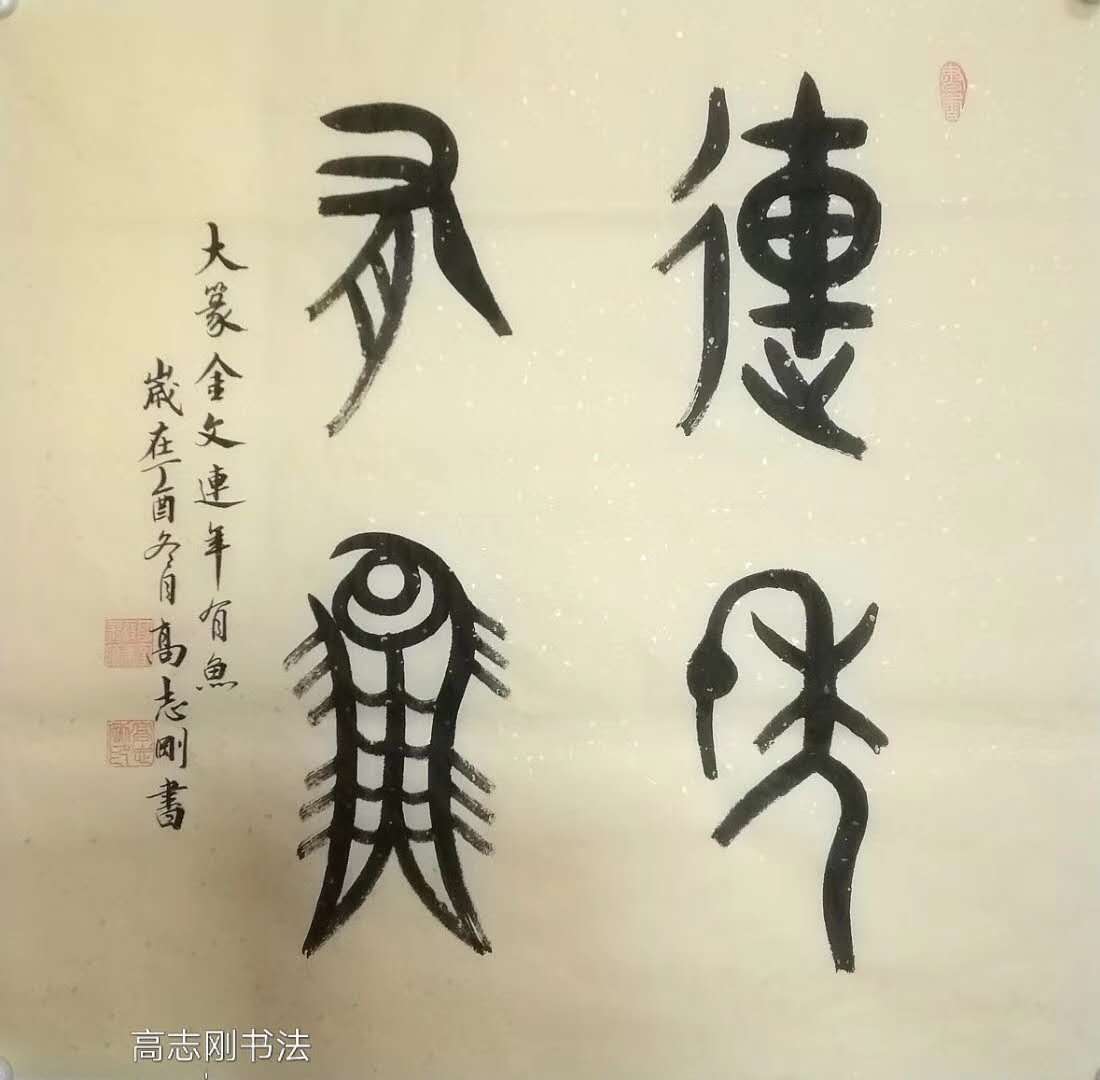 連年
有魚
大篆金文連年有魚
歲在丁酉冬月高志剛書
高志刚书法